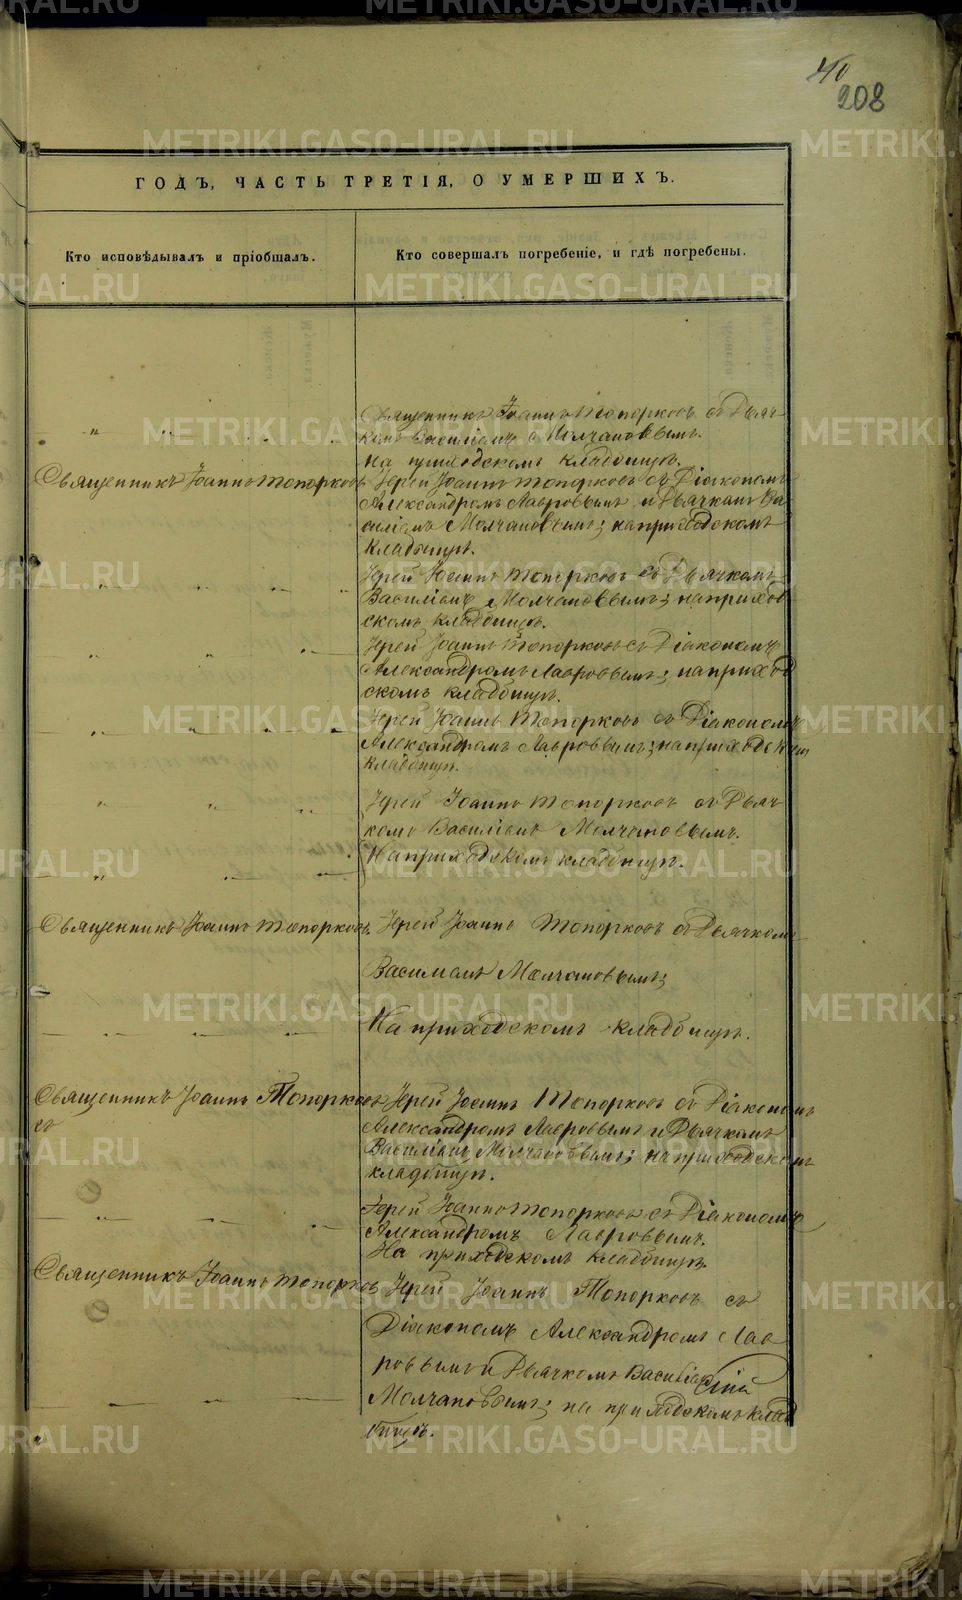 40
208
ГОДЪ, ЧАСТЬ ТРЕТІЯ, О УМЕРШИХЪ.
Кто исповѣдывалъ и пріобщалъ.
Кто совершалъ погребеніе, и гдѣ погребены.
Священникъ Іоаннъ Топорковъ съ Дьяч-
комъ Василіемъ Молчановымъ.
На приходскомъ кладбищѣ.
Священникъ Іоаннъ Топорковъ
Іерей Іоаннъ Топорковъ съ Діакономъ
Александромъ Лавровымъ и Дьячкомъ Ва-
силіемъ Молчановымъ; на приходскомъ
кладбищѣ.
Іерей Іоаннъ Топорковъ съ Дьячкомъ
Василіемъ Молчановымъ; на приход-
скомъ кладбищѣ.
Іерей Іоаннъ Топорковъ съ Діакономъ
Александромъ Лавровымъ; на приход
скомъ кладбищѣ.
Іерей Іоаннъ Топорковъ съ Діакономъ
Александромъ Лавровымъ; на приходскомъ
кладбищѣ.
Іерей Іоаннъ Топорковъ съ Дьяч-
комъ Василіемъ Молчановымъ.
На приходскомъ кладбищѣ.
Священникъ Іоаннъ Топорковъ
Іерей Іоаннъ Топорковъ съ Дьячкомъ
Василіемъ Молчановымъ;
На приходскомъ кладбищѣ.
Священникъ Іоаннъ Топорковъ
съ
Іерей Іоаннъ Топорковъ съ Діакономъ
Александромъ Лавровымъ и Дьячкомъ
Василіемъ Молчановымъ; на приходскомъ
кладбищѣ.
Іерей Іоаннъ Топорковъ съ Діакономъ
Александромъ Лавровымъ.
На приходскомъ кладбищѣ.
Священникъ Іоаннъ Топорковъ
Іерей Іоаннъ Топорковъ съ
Діакономъ Александромъ Лав
ровымъ и Дьячкомъ
Молчановымъ; на приходскомъ клад
бищѣ.
METRIKI.GASO-URAL.RU